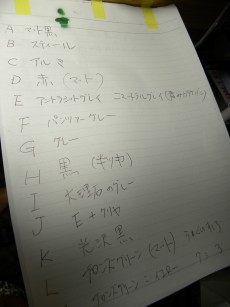 A マット黒
B スティール
C アルミ
D 赤 (マット)
E アンスラシットグレイ ニュートラルグレイ
F パンツァーグレー
G グレー
H 黒
I 大理石のグレー
J E + クリヤ
K 光沢 黒
L ブロンズグリーン (マット)
ブロンズグリーン